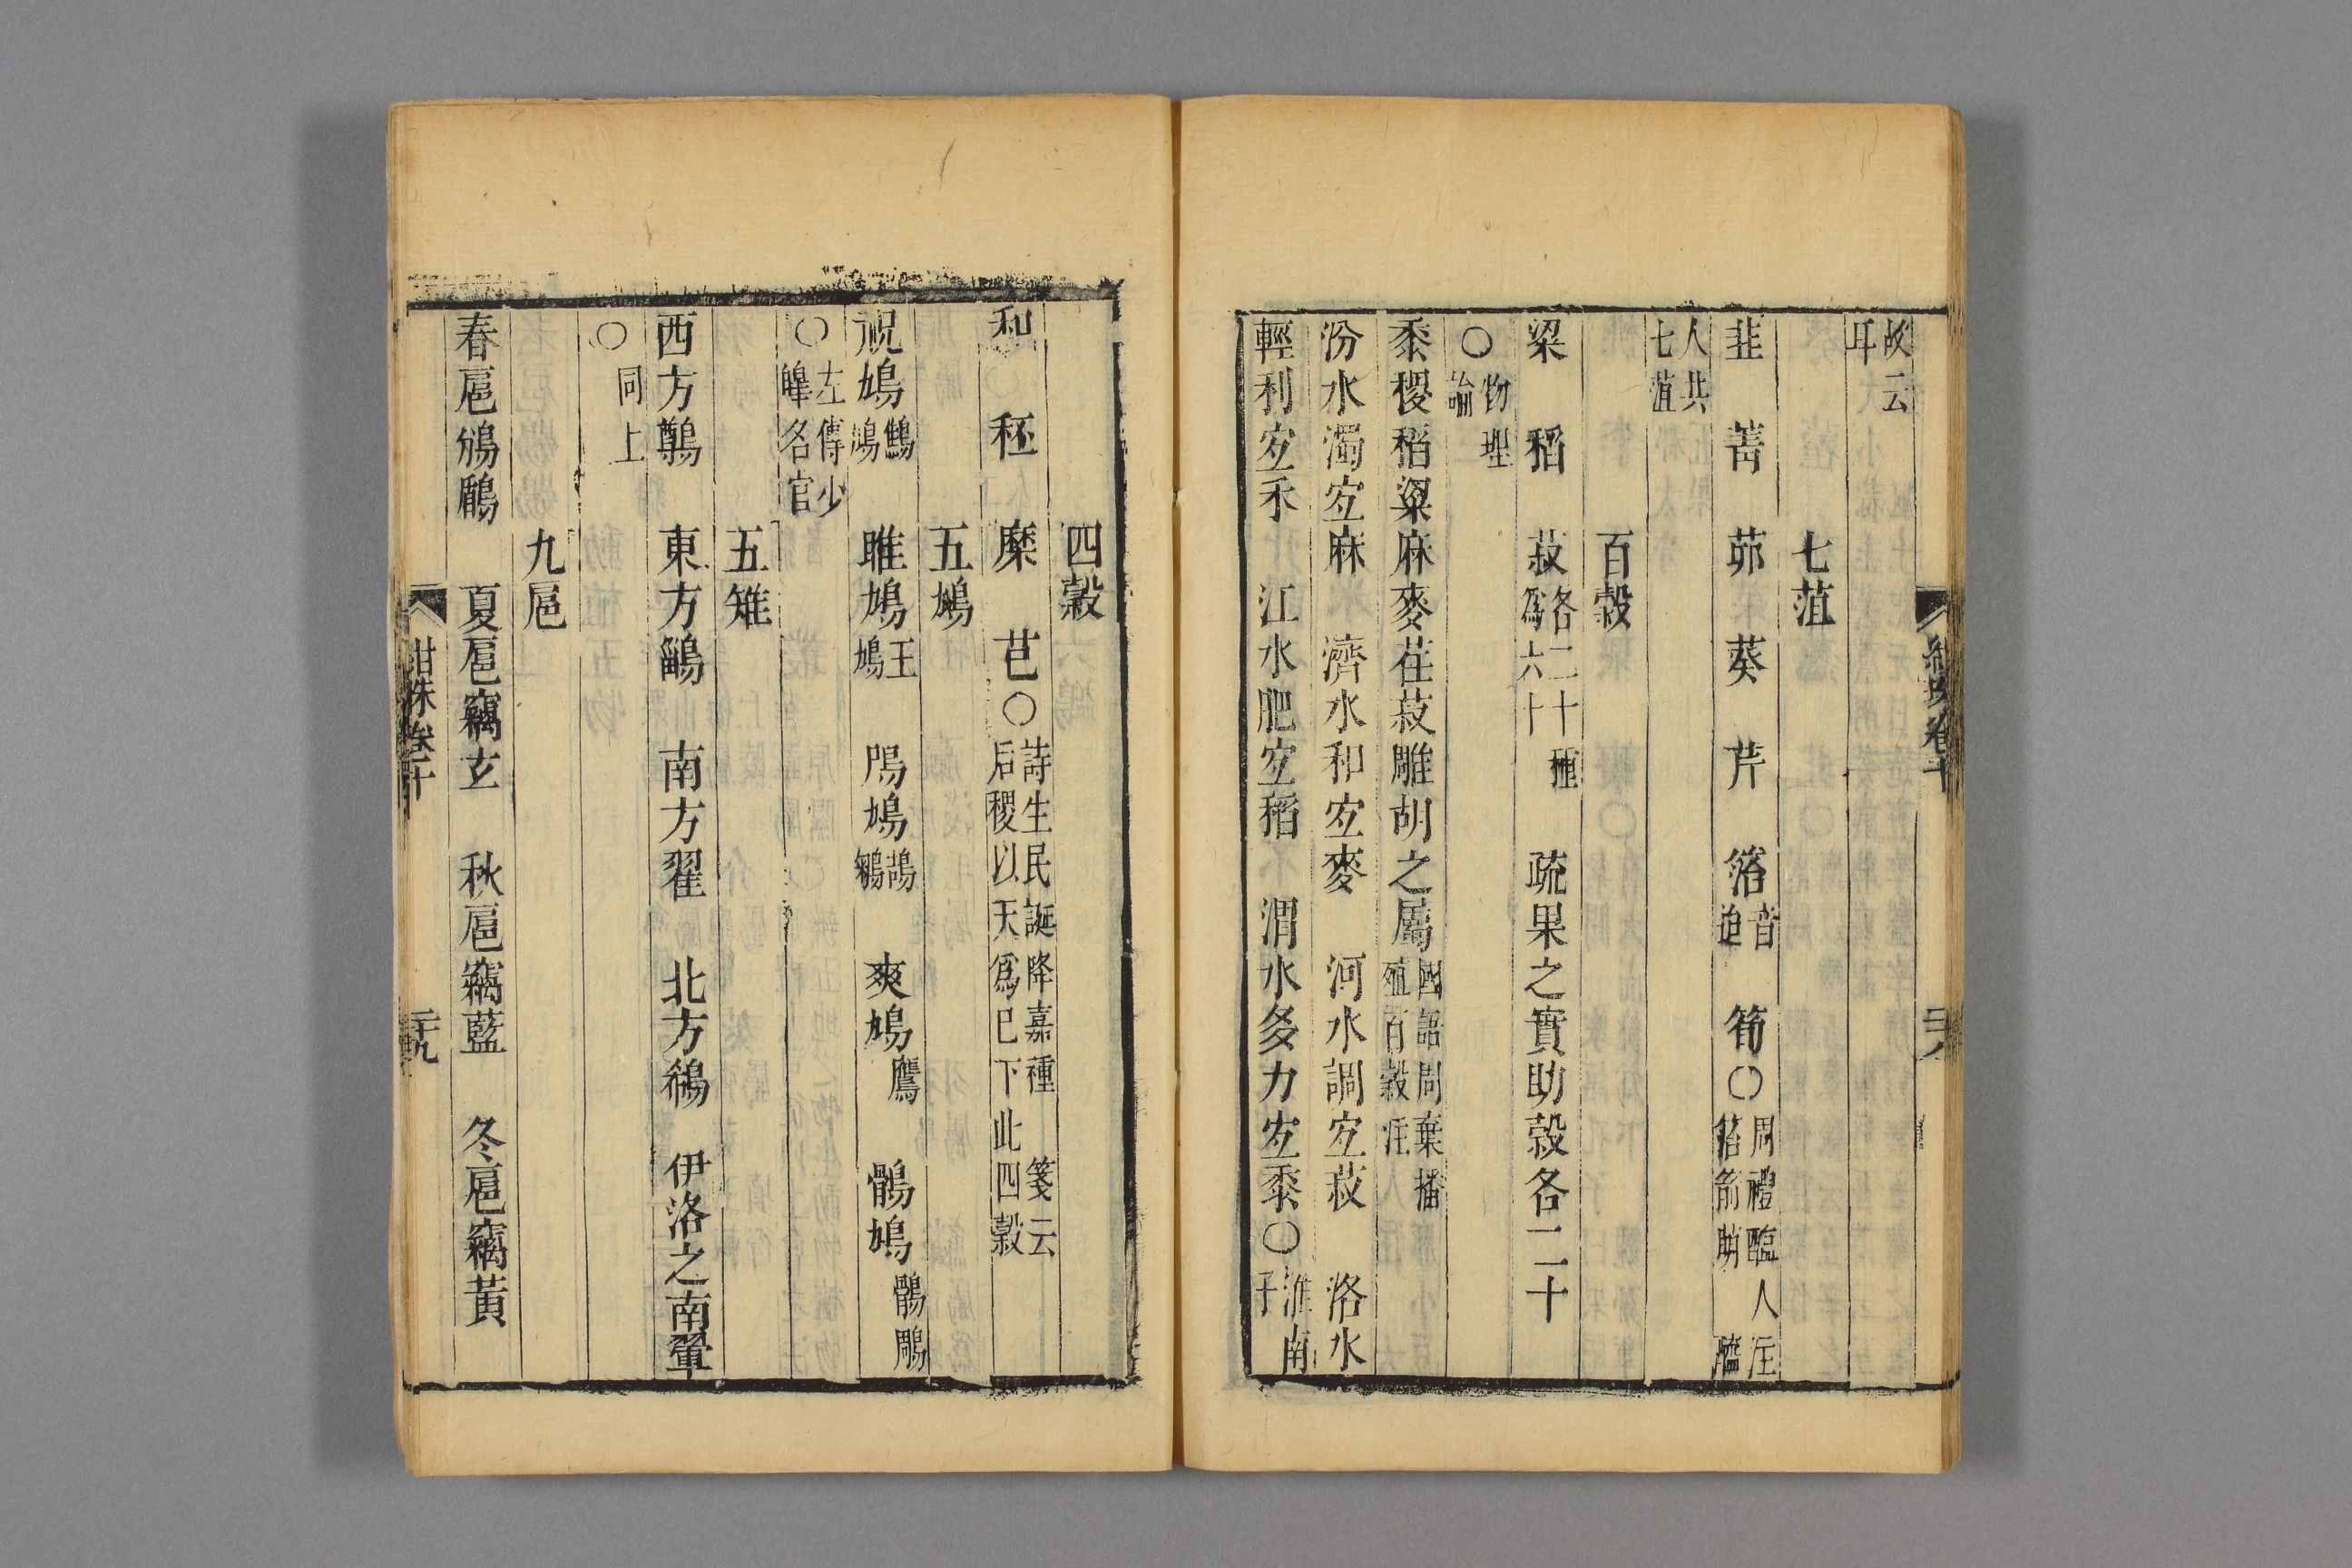 故云
耳
七菹
韭　菁　茆　葵　芹　箈音迨　筍○周禮醢人注箈箭萌醢
人共
七菹
百穀
粱　稻　菽各二十種爲六十　疏果之實助穀各二十
○物理論
黍稷稻粱麻麥荏菽雕胡之屬國語周棄播殖百穀注
汾水濁宐麻　濟水和宐麥　河水調宐菽　洛水
輕利宐禾　江水肥宐稻　渭水多力宐黍○淮南子
四穀
秬　秠　穈　芑○詩生民誕降嘉種　箋云后稷以天爲已下此四穀
五鳩
祝鳩鷦鳩　雎鳩王鳩　鳲鳩鵠鶵　爽鳩鷹　鶻鳩鶻鵰
○左傳少皞名官
五雉
西方鷷　東方鶅　南方翟　北方鵗　伊洛之南翬
○同上
九扈
春扈鳻鶥　夏扈竊玄　秋扈竊藍　冬扈竊黃
紺珠卷二十
二十九